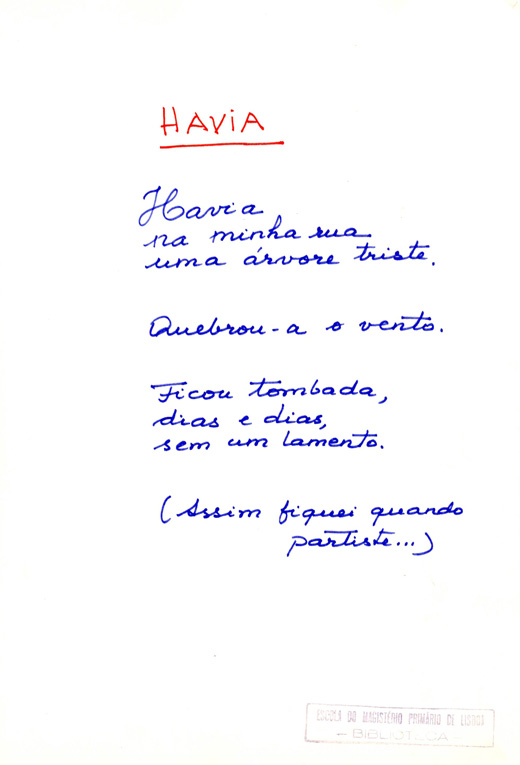 HAVIA
Havia
na minha rua
uma árvore triste.
Quebrou-a o vento.
Ficou tombada,
dias e dias,
sem um lamento.
(Assim fiquei quando
partiste...)
ESCOLA DO MAGISTÉRIO PRIMÁRIO DE LISBOA
- BIBLIOTECA -